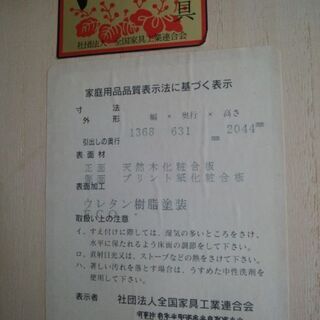 具
社団法人 全国家具工業連合会
家庭用品品質表示法に基づく表示
寸 法
外 形 幅 × 奥行 × 高さ
1368 631 2044
引出しの奥行
表面材
正面 天然木化粧合板
側面 プリント紙化粧合板
表面加工
ウレタン樹脂塗装
取扱い上の注意
イ、すえ付けに際しては、湿気の多いところをさけ、
水平に保たれるよう床面の調節をして下さい。
ロ、直射日光又は、ストーブなどの熱をさけて下さい。
ハ、著しい汚れを落とす場合は、うすめた中性洗剤を
使用して下さい。
表示者 社団法人全国家具工業連合会